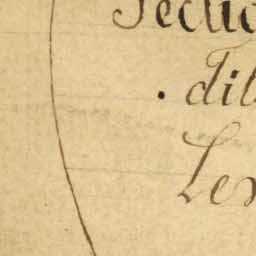 Sectio
. dil
Lex